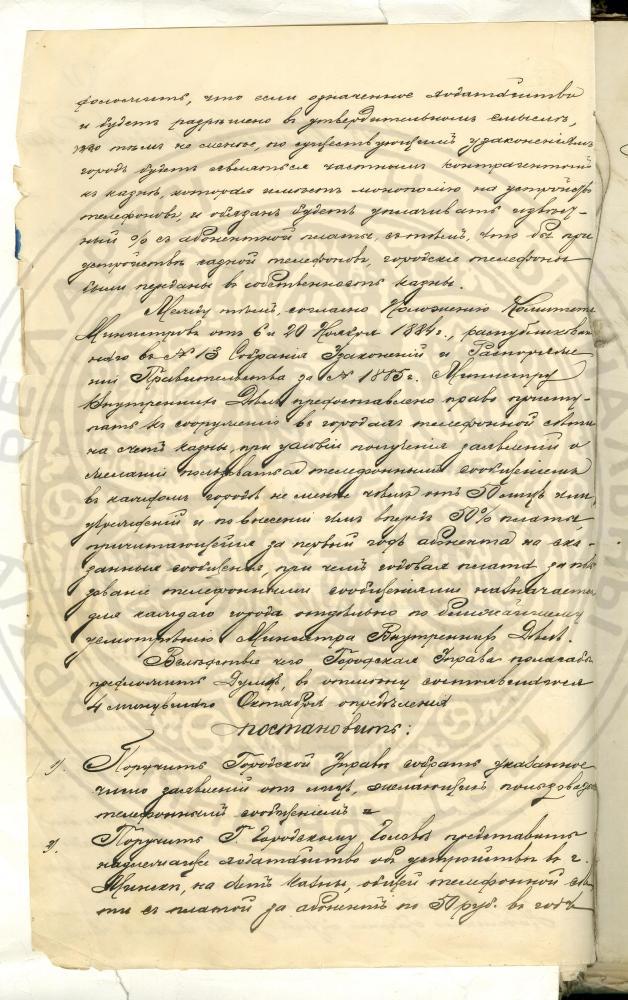 положить, что если означенное ходатайство
и будетъ разрѣшено въ утвердительномъ смыслѣ,
то тѣмъ не менѣе, по существующимъ узаконеніямъ
городъ будетъ являться частнымъ контрагентомъ
къ казнѣ, которая имѣетъ монополію на устройство
телефоновъ, и обязанъ будетъ уплачивать извѣст-
ный % съ абонентной платы, съ тѣмъ, что бы при
устройствѣ казной телефоновъ, городскіе телефоны
были переданы въ собственность казны.
Между тѣмъ, согласно Положенію Комитета
Министровъ отъ 6 и 20 Ноября 1884 г., распубликован-
наго въ № 13 Собранія Узаконеній и Распоряже-
ній Правительства за № 1885 г. Министру
Внутреннихъ Дѣлъ предоставлено право присту-
пать къ сооруженію въ городахъ телефонной сѣти
на счетъ казны, при условіи полученія заявленій о
желаніи пользоваться телефоннымъ сообщеніемъ
въ каждомъ городѣ не менѣе чѣмъ отъ 50 лицъ или
учрежденій и по внесеніи ими впередъ 50% платы,
причитающейся за первый годъ абонента на ска-
занныя сообщенія, при чемъ годовая плата за поль
зованіе телефонными сообщеніями назначается
для каждаго города отдѣльно по ближайшему
усмотрѣнію Министра Внутреннихъ Дѣлъ.
Вслѣдствіе чего Городская Управа полагала бы
предложить Думѣ, въ отмѣну состоявшагося
4 минувшаго Октября опредѣленія
постановить:
1). Поручить Городской Управѣ собрать указанное
число заявленій отъ лицъ, желающихъ пользоваться
телефоннымъ сообщеніемъ и
2). Поручить Г. Городскому Головѣ представить
надлежащее ходатайство объ устройствѣ въ г.
Минскѣ, на счетъ казны, общей телефонной сѣ-
ти съ платой за абонентъ по 50 руб. въ годъ